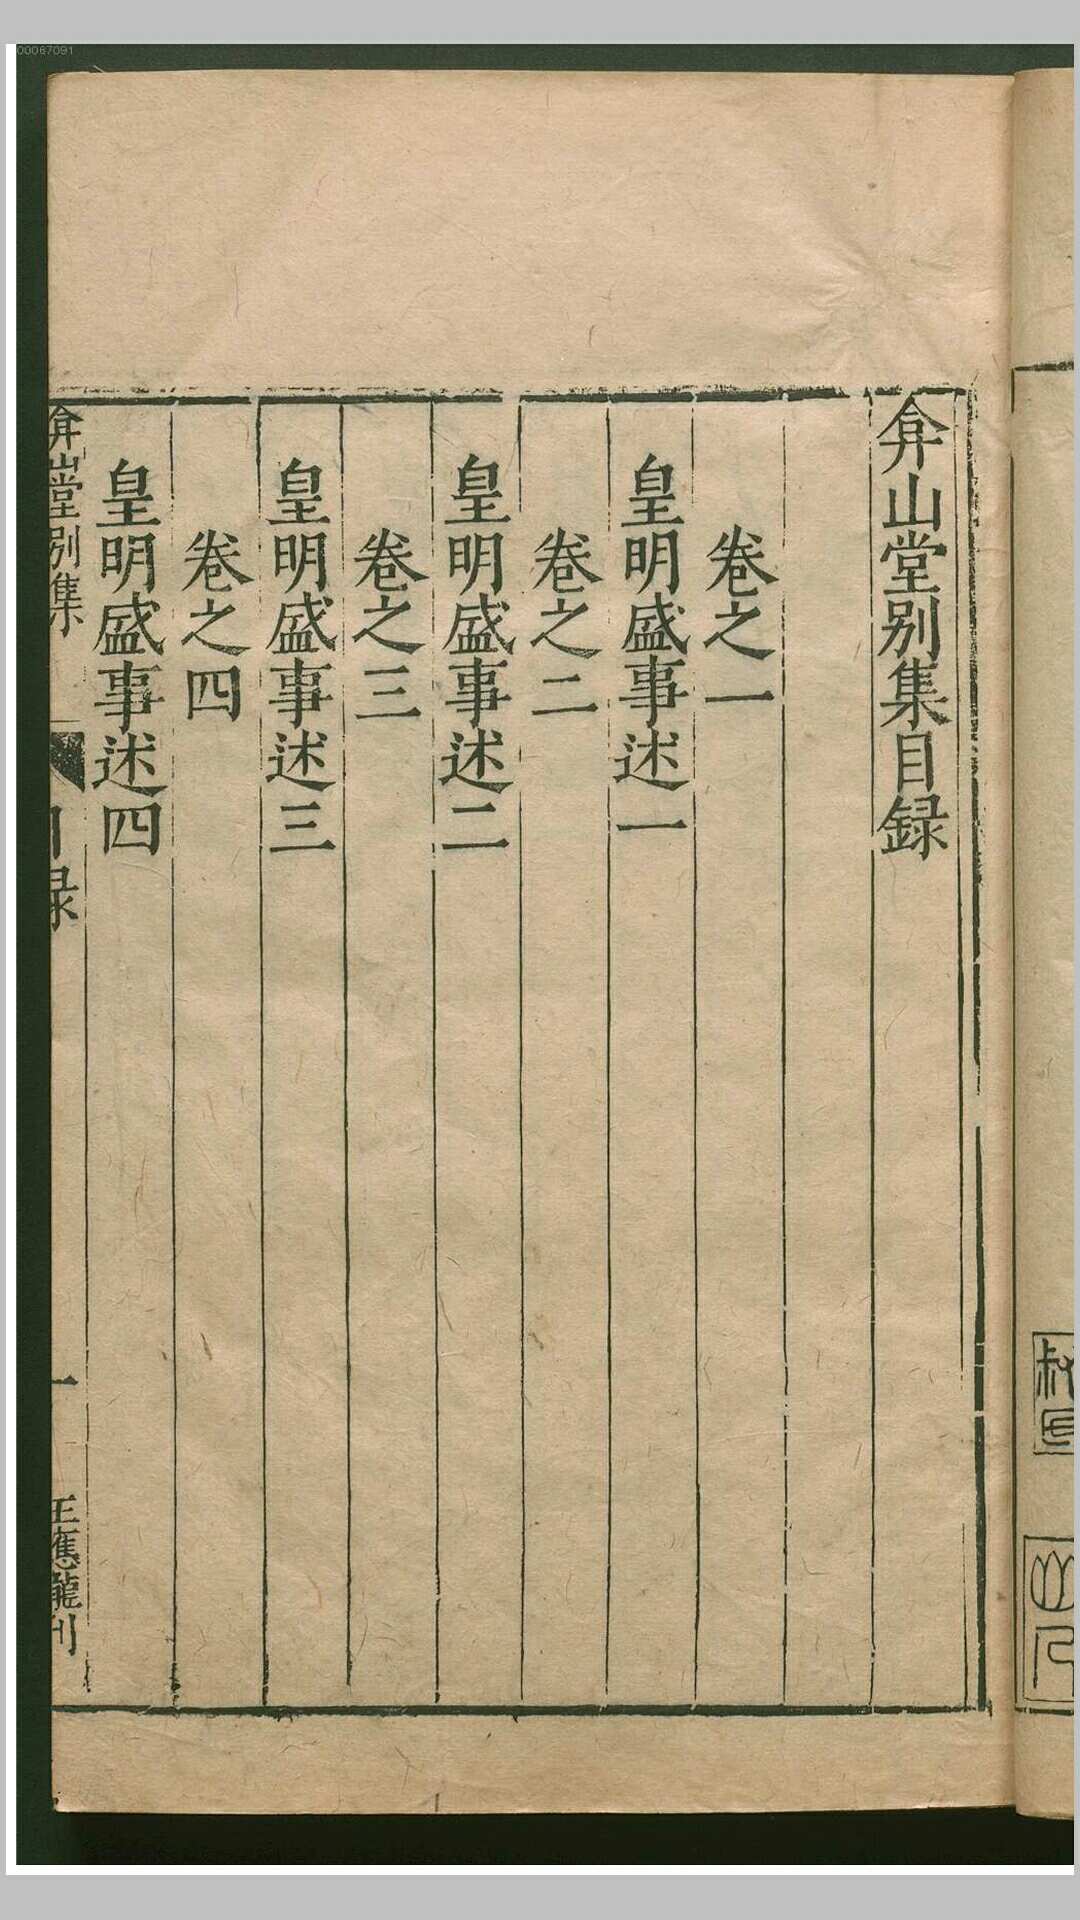 00067091
弇山堂别集目録
卷之一
皇明盛事述一
卷之二
皇明盛事述二
卷之三
皇明盛事述三
卷之四
皇明盛事述四
弇山堂别集
目録
一
王應龍刊